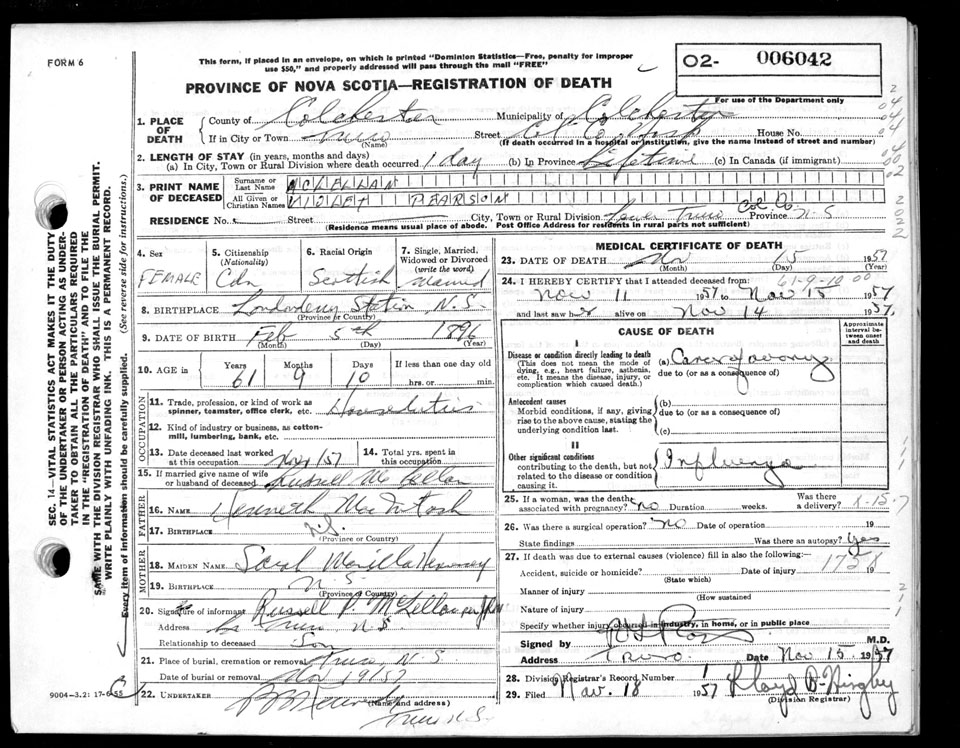 FORM 6
This form, if placed in an envelope, on which is printed "Dominion Statistics—Free, penalty for improper
use $50," and properly addressed will pass through the mail "FREE"
PROVINCE OF NOVA SCOTIA—REGISTRATION OF DEATH
02- 006042
For use of the Department only
1. PLACE OF DEATH County of Colchester Municipality of Colchester
If in City or Town Truro Street Col. Co. Hosp House No.
(Name) (If death occurred in a hospital or institution, give the name instead of street and number)
2. LENGTH OF STAY (in years, months and days)
(a) In City, Town or Rural Division where death occurred 1 day (b) In Province Lifetime (c) In Canada (if immigrant)
3. PRINT NAME OF DECEASED Surname or Last Name MCLELLAN
All Given or Christian Names VIOLET PEARSON
RESIDENCE No. Street City, Town or Rural Division Lower Truro Col. Co. Province N.S
(Residence means usual place of abode. Post Office Address for residents in rural parts not sufficient)
4. Sex FEMALE
5. Citizenship (Nationality) Cdn
6. Racial Origin Scottish
7. Single, Married, Widowed or Divorced (write the word) Married
8. BIRTHPLACE Londonderry Station, N.S.
(Province or Country)
9. DATE OF BIRTH Feb 5th 1896
(Month) (Day) (Year)
10. AGE in Years 61 Months 9 Days 10 If less than one day old
hrs. or min.
OCCUPATION
11. Trade, profession, or kind of work as
spinner, teamster, office clerk, etc. Houseduties
12. Kind of industry or business, as cotton-
mill, lumbering, bank, etc.
13. Date deceased last worked
at this occupation Nov/57
14. Total yrs. spent in
this occupation
15. If married give name of wife
or husband of deceased Russell McLellan
FATHER
16. NAME Kenneth MacIntosh
17. BIRTHPLACE N.S.
(Province or Country)
MOTHER
18. MAIDEN NAME
19. BIRTHPLACE N.S.
(Province or Country)
20. Signature of informant Russell P. McLellan per
Address Truro N.S.
Relationship to deceased Son
21. Place of burial, cremation or removal Truro, N.S
Date of burial or removal Nov 19/57
22. UNDERTAKER
(Name and address)
Truro N.S.
MEDICAL CERTIFICATE OF DEATH
23. DATE OF DEATH Nov 15 1957
(Month) (Day) (Year)
61-9-10
24. I HEREBY CERTIFY that I attended deceased from
Nov 11 1957 to Nov 15 1957
and last saw her alive on Nov 14 1957.
CAUSE OF DEATH
Approximate interval between onset and death
I
Disease or condition directly leading to death
(This does not mean the mode of
dying, e.g., heart failure, asthenia,
etc. It means the disease, injury, or
complication which caused death.)
(a)
due to (or as a consequence of)
Antecedent causes
Morbid conditions, if any, giving
rise to the above cause, stating the
underlying condition last.
(b)
due to (or as a consequence of)
(c)
II
Other significant conditions
contributing to the death, but not
related to the disease or condition
causing it.
Influenza
25. If a woman, was the death
associated with pregnancy? no Duration weeks. Was there
a delivery?
26. Was there a surgical operation? no Date of operation 19
State findings Was there an autopsy? yes
27. If death was due to external causes (violence) fill in also the following:—
Accident, suicide or homicide? Date of injury 19
(State which)
Manner of injury
(How sustained
Nature of injury
Specify whether injury occurred in industry, in home, or in public place
Signed by M.D.
Address Truro Date Nov 15 1957
28. Division Registrar's Record Number 1
29. Filed Nov. 18 1957 Lloyd
(Division Registrar)
SEC. 14—VITAL STATISTICS ACT MAKES IT THE DUTY
OF THE UNDERTAKER OR PERSON ACTING AS UNDER-
TAKER TO OBTAIN ALL THE PARTICULARS REQUIRED
IN THE "REGISTRATION OF DEATH" AND TO FILE THE
SAME WITH THE DIVISION REGISTRAR WHO SHALL ISSUE THE BURIAL PERMIT.
WRITE PLAINLY WITH UNFADING INK. THIS IS A PERMANENT RECORD.
Every item of information should be carefully supplied. (See reverse side for instructions.)